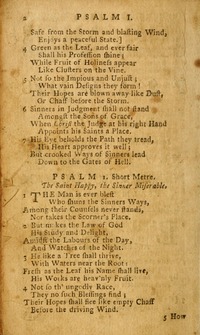 2 PSALM I.
Safe from the Storm and blasting Wind,
Enjoys a peaceful State.]
4 Green as the Leaf, and ever fair
Shall his Profession shine;
While Fruit of Holiness appear
Like Clusters on the Vine.
5 Not so the Impious and Unjust;
What vain Designs they form!
Their Hopes are blown away like Dust,
Or Chaff before the Storm.
6 Sinners in Judgment shall not stand
Amongst the Sons of Grace,
When Christ the Judge at his right Hand
Appoints his Saints a Place.
7 His Eye beholds the Path they tread,
His Heart approves it well;
But crooked Ways of Sinners lead
Down to the Gates of Hell.
PSALM 1. Short Metre.
The Saint Happy, the Sinner Miserable.
1 THE Man is ever blest
Who shuns the Sinners Ways,
Among their Counsels never stands,
Nor takes the Scorner's Place.
2 But makes the Law of God
His Study and Delight,
Amidst the Labours of the Day,
And Watches of the Night.
3 He like a Tree shall thrive,
With Waters near the Root:
Fresh as the Leaf his Name shall live,
His Works are heav'nly Fruit.
4 Not so th' ungodly Race,
They no such Blessings find;
Their Hopes shall flee like empty Chaff
Before the driving Wind.
5 How